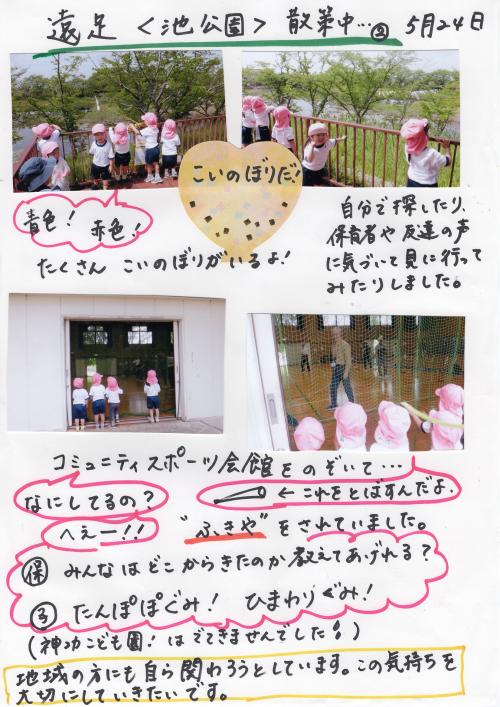 遠足 <池公園> 散策中…② 5月24日
こいのぼりだ!
青色! 赤色!
たくさん こいのぼりがいるよ!
自分で探したり、
保育者や友達の声
に気づいて見に行って
みたりしました。
コミュニティスポーツ会館をのぞいて…
なにしてるの?
←これをとばすんだよ。
へぇー!!
"ふきや"をされていました。
保 みんなはどこからきたのか教えてあげれる?
子 たんぽぽぐみ! ひまわりぐみ!
(神功こども園!はでてきませんでした!)
地域の方にも自ら関わろうとしています。この気持ちを
大切にしていきたいです。